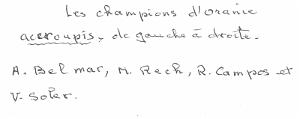 Les champions d'oranie
accroupis, de gauche à droite.
A. Belmar, M. Rech, R. Campos et
V. Soler.